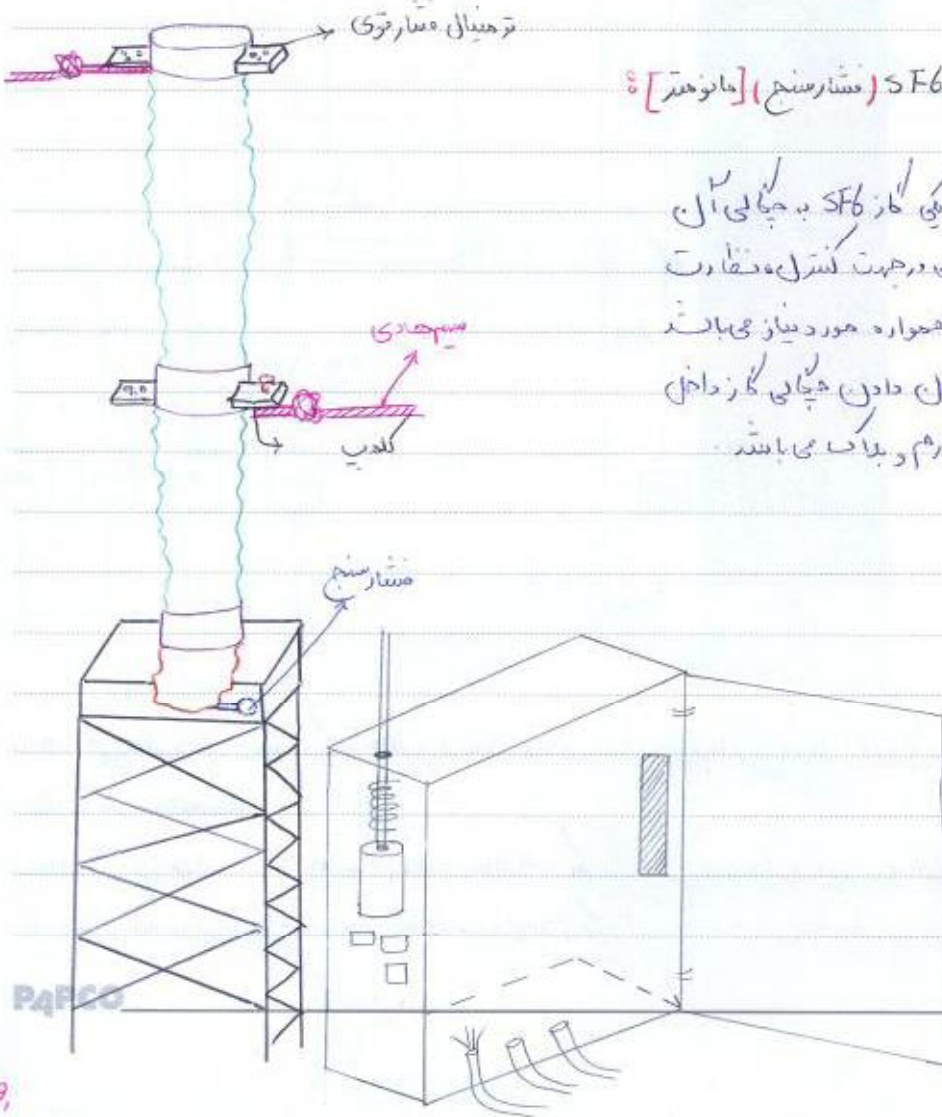 ترمینال فشار قوی
SF6 (فشارسنج) [مانومتر]:
گاز SF6 به چگالی آن
در جهت کنترل و نظارت
همواره مورد نیاز می باشد
دادن چگالی گاز داخل
و بلاک می باشد.
سیم هادی
کلمپ
فشارسنج
PAPCO